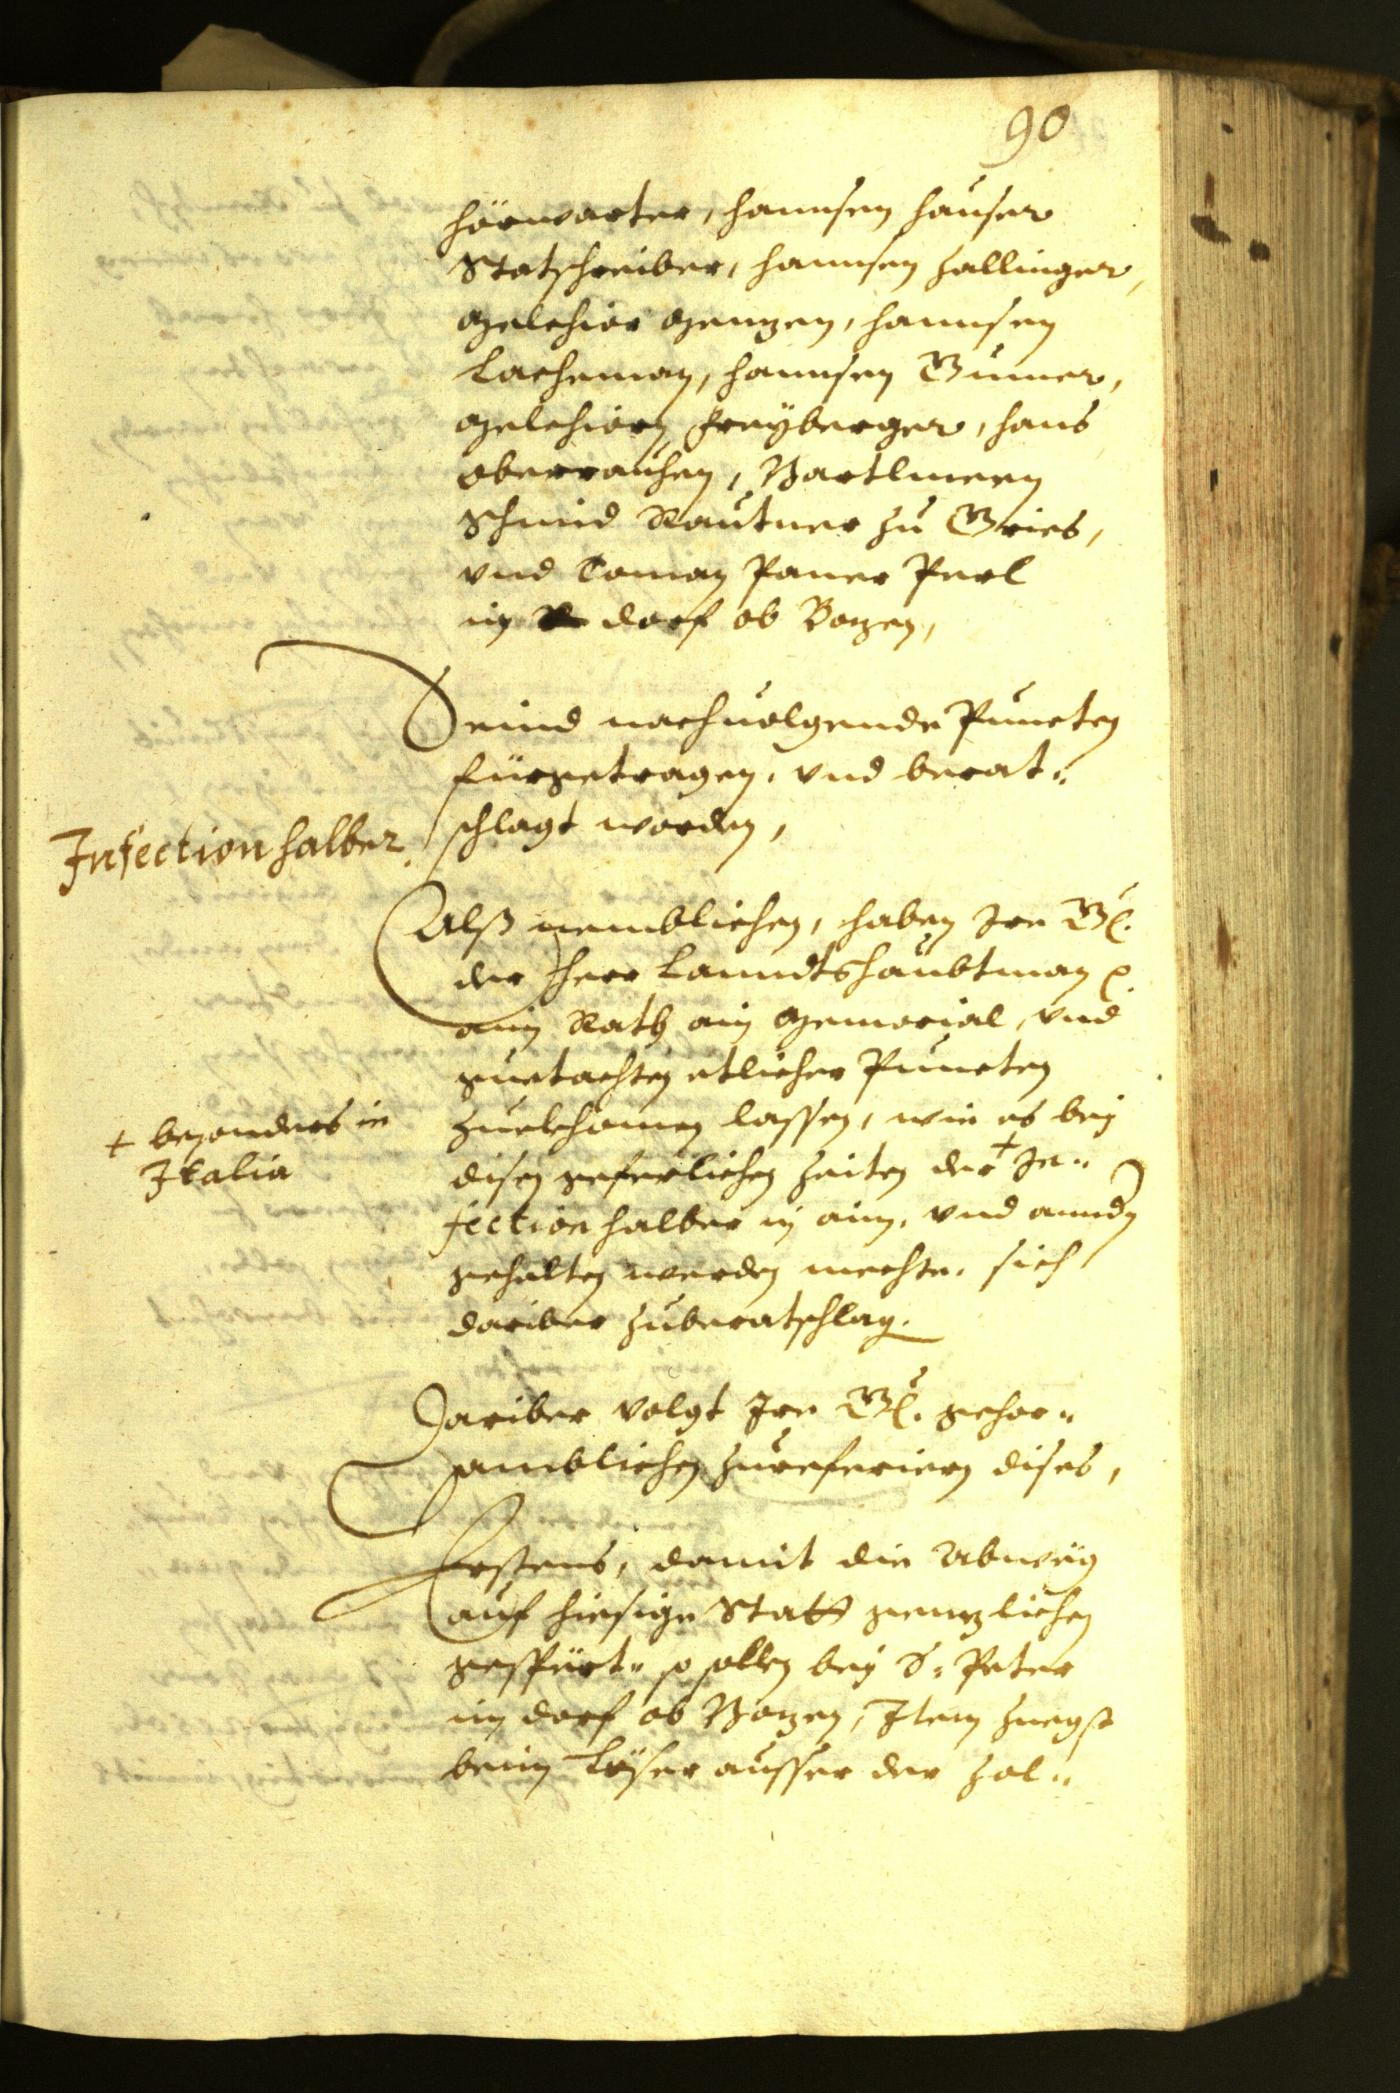 90
hörwarter, hannsen hauser
Statschreiber, hannsen Zallinger,
Melchior Menzen, hannsen
Lacheman, hannsen Gumer,
Melchiorn Freyberger, hans
oberrauchen, Bartlmeen
Schmid Rautner zu Gries,
vnd Toman Paner Perl
in dorf ob Bozen,
Seind nachuolgende Puncten
fürgetragen, vnd berat=
schlagt worden,
Infection halber.
Alß nemblichen, haben Ire Gl.
der herr Lanndtshaubtman
ain Rath ain Memorial, vnd
guetachten etlicher Puncten
zuekhomen lassen, wie es bey
+ besonders in
Italia
disen geferlichen Zeiten der + In=
fection halber in ain, vnd annder
gehalten werden mechte, sich
dariber zuberatschlag.
Dariber volgt Ire Gl. gehor=
samblichen zureferiern dises,
Erstens, damit die Abweg
auf hiesige Statt genzlichen
gespört= so sollen bey S: Peter
im dorf ob Bozen, Item zuegst
beim ausser der Zol=